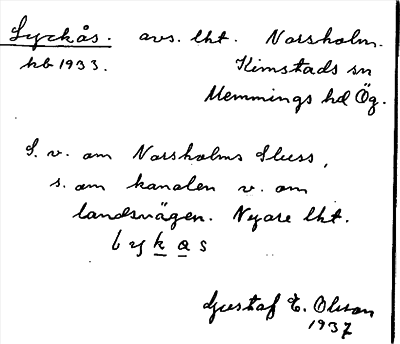 Lyckås. avs. lht. Norsholm.
hb 1933. Kimstads sn
Memmings hd Ög.
S. v. om Norsholms Sluss,
s. om kanalen v. om
landsvägen. Nyare lht.
Gustaf E. Olsson
1937